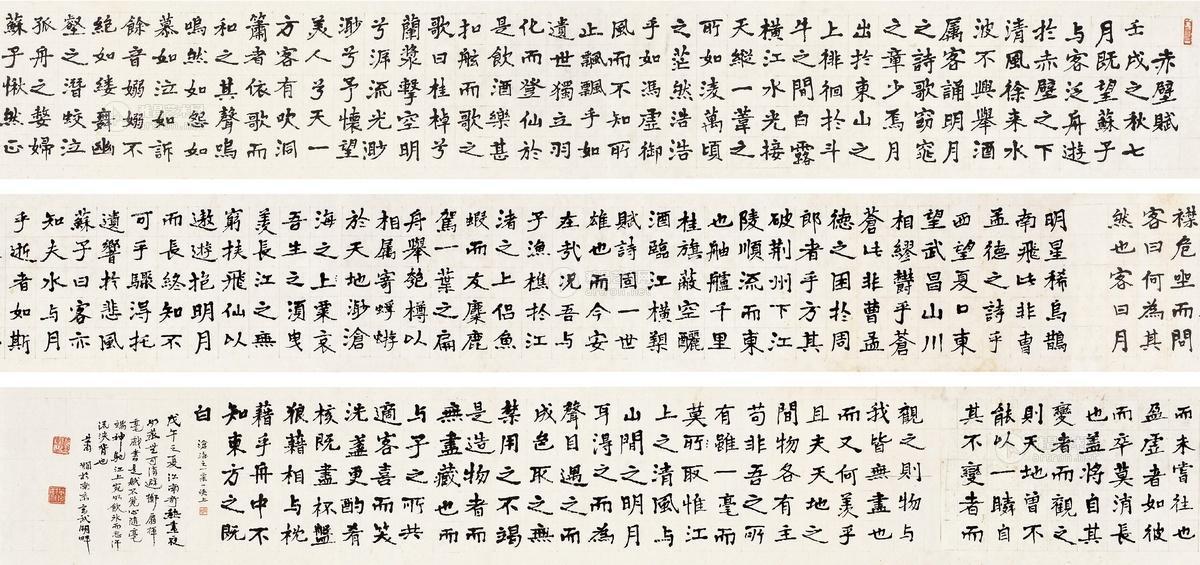 赤壁賦
壬戌之秋七
月既望蘇子
与客泛舟遊
於赤壁之下
清風徐来水
波不興舉酒
属客誦明月
之詩歌窈窕
之章少焉月
出於東山之
上徘徊於斗
牛之間白露
橫江水光接
天縱一葦之
所如淩萬頃
之茫然浩浩
乎如馮虛御
風而不知所
止飄飄乎如
遺世獨立羽
化而登仙於
是飲酒樂甚
扣舷而歌之
歌曰桂棹兮
蘭漿擊空明
兮泝流光渺
渺兮予懷望
美人兮天一
方客有吹洞
簫者依歌而
和之其聲嗚
嗚然如怨如
慕如泣如訴
餘音嫋嫋不
絕如縷舞幽
壑之潛蛟泣
孤舟之嫠婦
蘇子愀然正
襟危坐而問
客曰何為其
然也客曰月
明星稀烏鵲
南飛此非曹
孟德之詩乎
西望夏口東
望武昌山川
相繆鬱乎蒼
蒼此非曹孟
德之困於周
郎者乎方其
破荆州下江
陵順流而東
也舳艫千里
桂旗蔽空釃
酒臨江橫槊
賦詩固一世
雄也而今安
在哉況吾与
子漁樵於江
渚之上侶魚
蝦而友麋鹿
駕一葉之扁
舟舉匏樽以
相属寄蜉蝣
於天地渺滄
海之上粟哀
吾生之須臾
羡長江之無
窮挟飛仙以
遨遊抱明月
而長終知不
可乎驟得托
遺響於悲風
蘇子曰客亦
知夫水与月
乎逝者如斯
而未嘗往也
盈虛者如彼
而卒莫消長
也盖將自其
變者而觀之
則天地曾不
能以一瞬自
其不變者而
觀之則物与
我皆無盡也
而又何羡乎
且夫天地之
間物各有主
苟非吾之所
有雖一毫而
莫所取惟江
上之清風与
山間之明月
耳得之而為
聲目遇之而
成色取之無
禁用之不竭
是造物者之
無盡藏也而
与子之所共
適客喜而笑
洗盞更酌肴
核既盡杯盤
狼藉相与枕
藉乎舟中不
知東方之既
白
戊午之夏江南奇熱晝夜